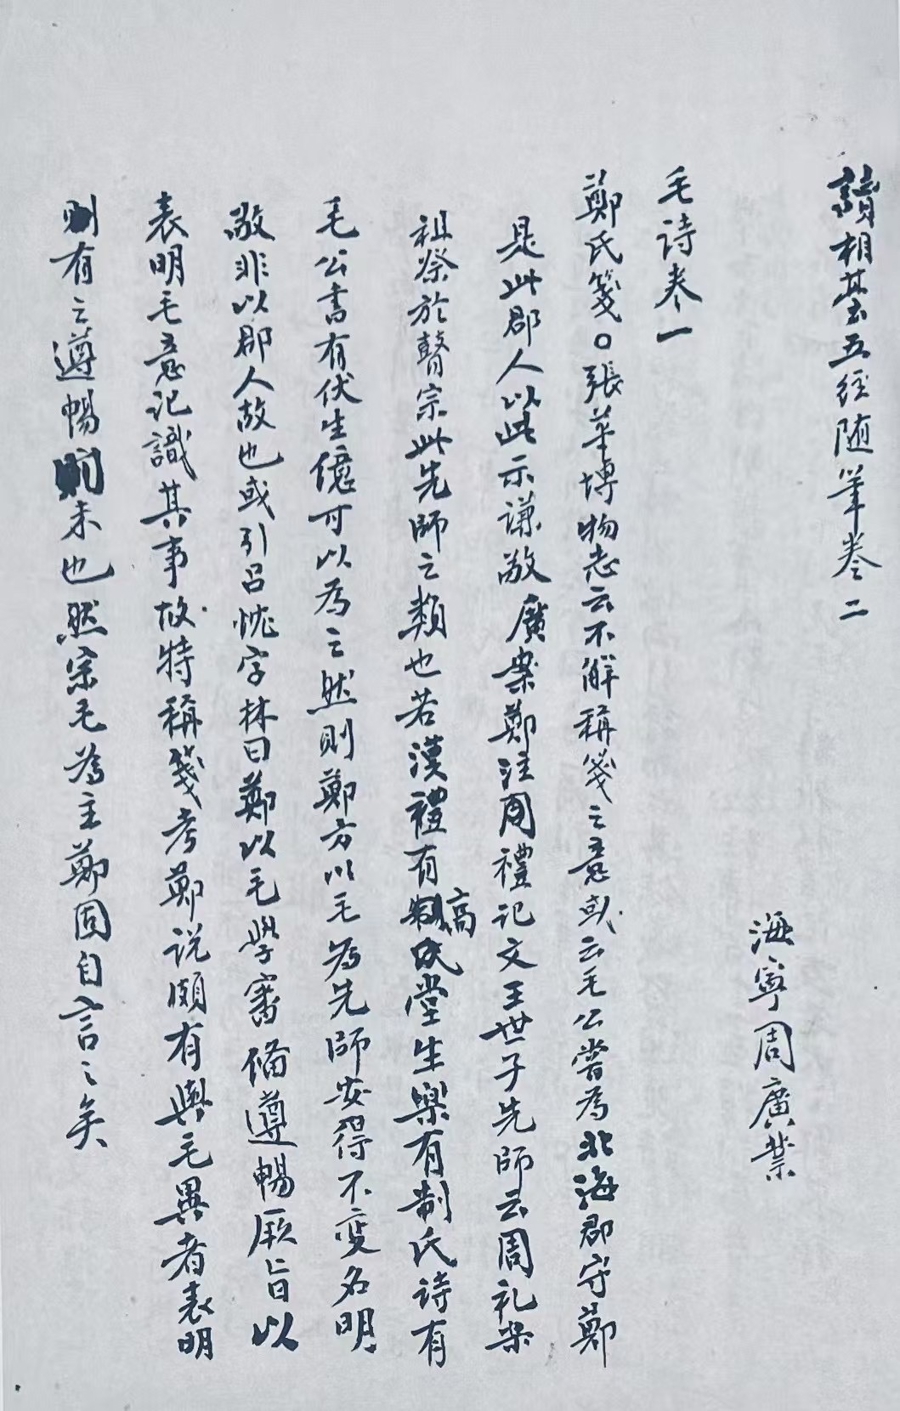 讀相基五經隨筆卷二
海寧周廣業
毛诗卷一
鄭氏箋○張華博物志云不解稱箋之意或云毛公嘗為北海郡守鄭
是此郡人以此示谦敬廣案鄭注周禮记文王世子先師云周礼樂
祖祭於瞽宗此先師之類也若漢禮有高堂生樂有制氏诗有
毛公書有伏生億可以為之然則鄭方以毛為先師安得不变名明
敬非以郡人故也或引吕忱字林曰鄭以毛學審偹遵暢厥旨以
表明毛意记識其事故特稱箋考鄭说頗有與毛異者表明
則有之遵暢則未也然宗毛為主鄭固自言之矣